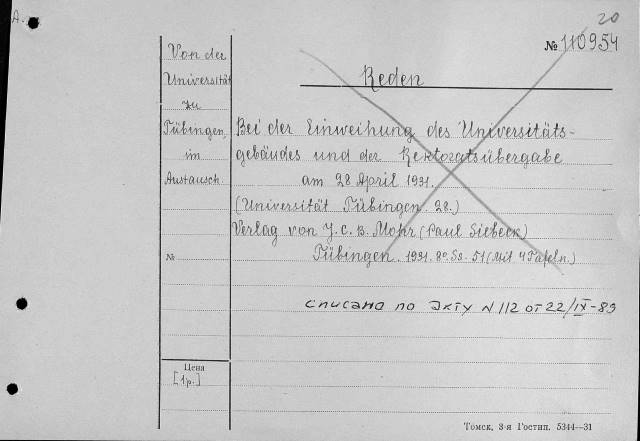 A.
20
№ 110954
Von der
Universität
zu
Tübingen
im
Austausch.
Reden
Bei der Einweihung des Universitäts-
gebäudes und der Rektoratsübergabe
am 28 April 1931.
(Universität Tübingen. 28.)
Verlag von J. C. B. Mohr (Paul Siebeck)
Tübingen. 1931. 8o. Ss. 51 (Mit 4 Tafeln.)
№
списано по Акту N 112 от 22/IX-89
Цена
[1р.]
Томск, 3-я Гостип. 5344—31